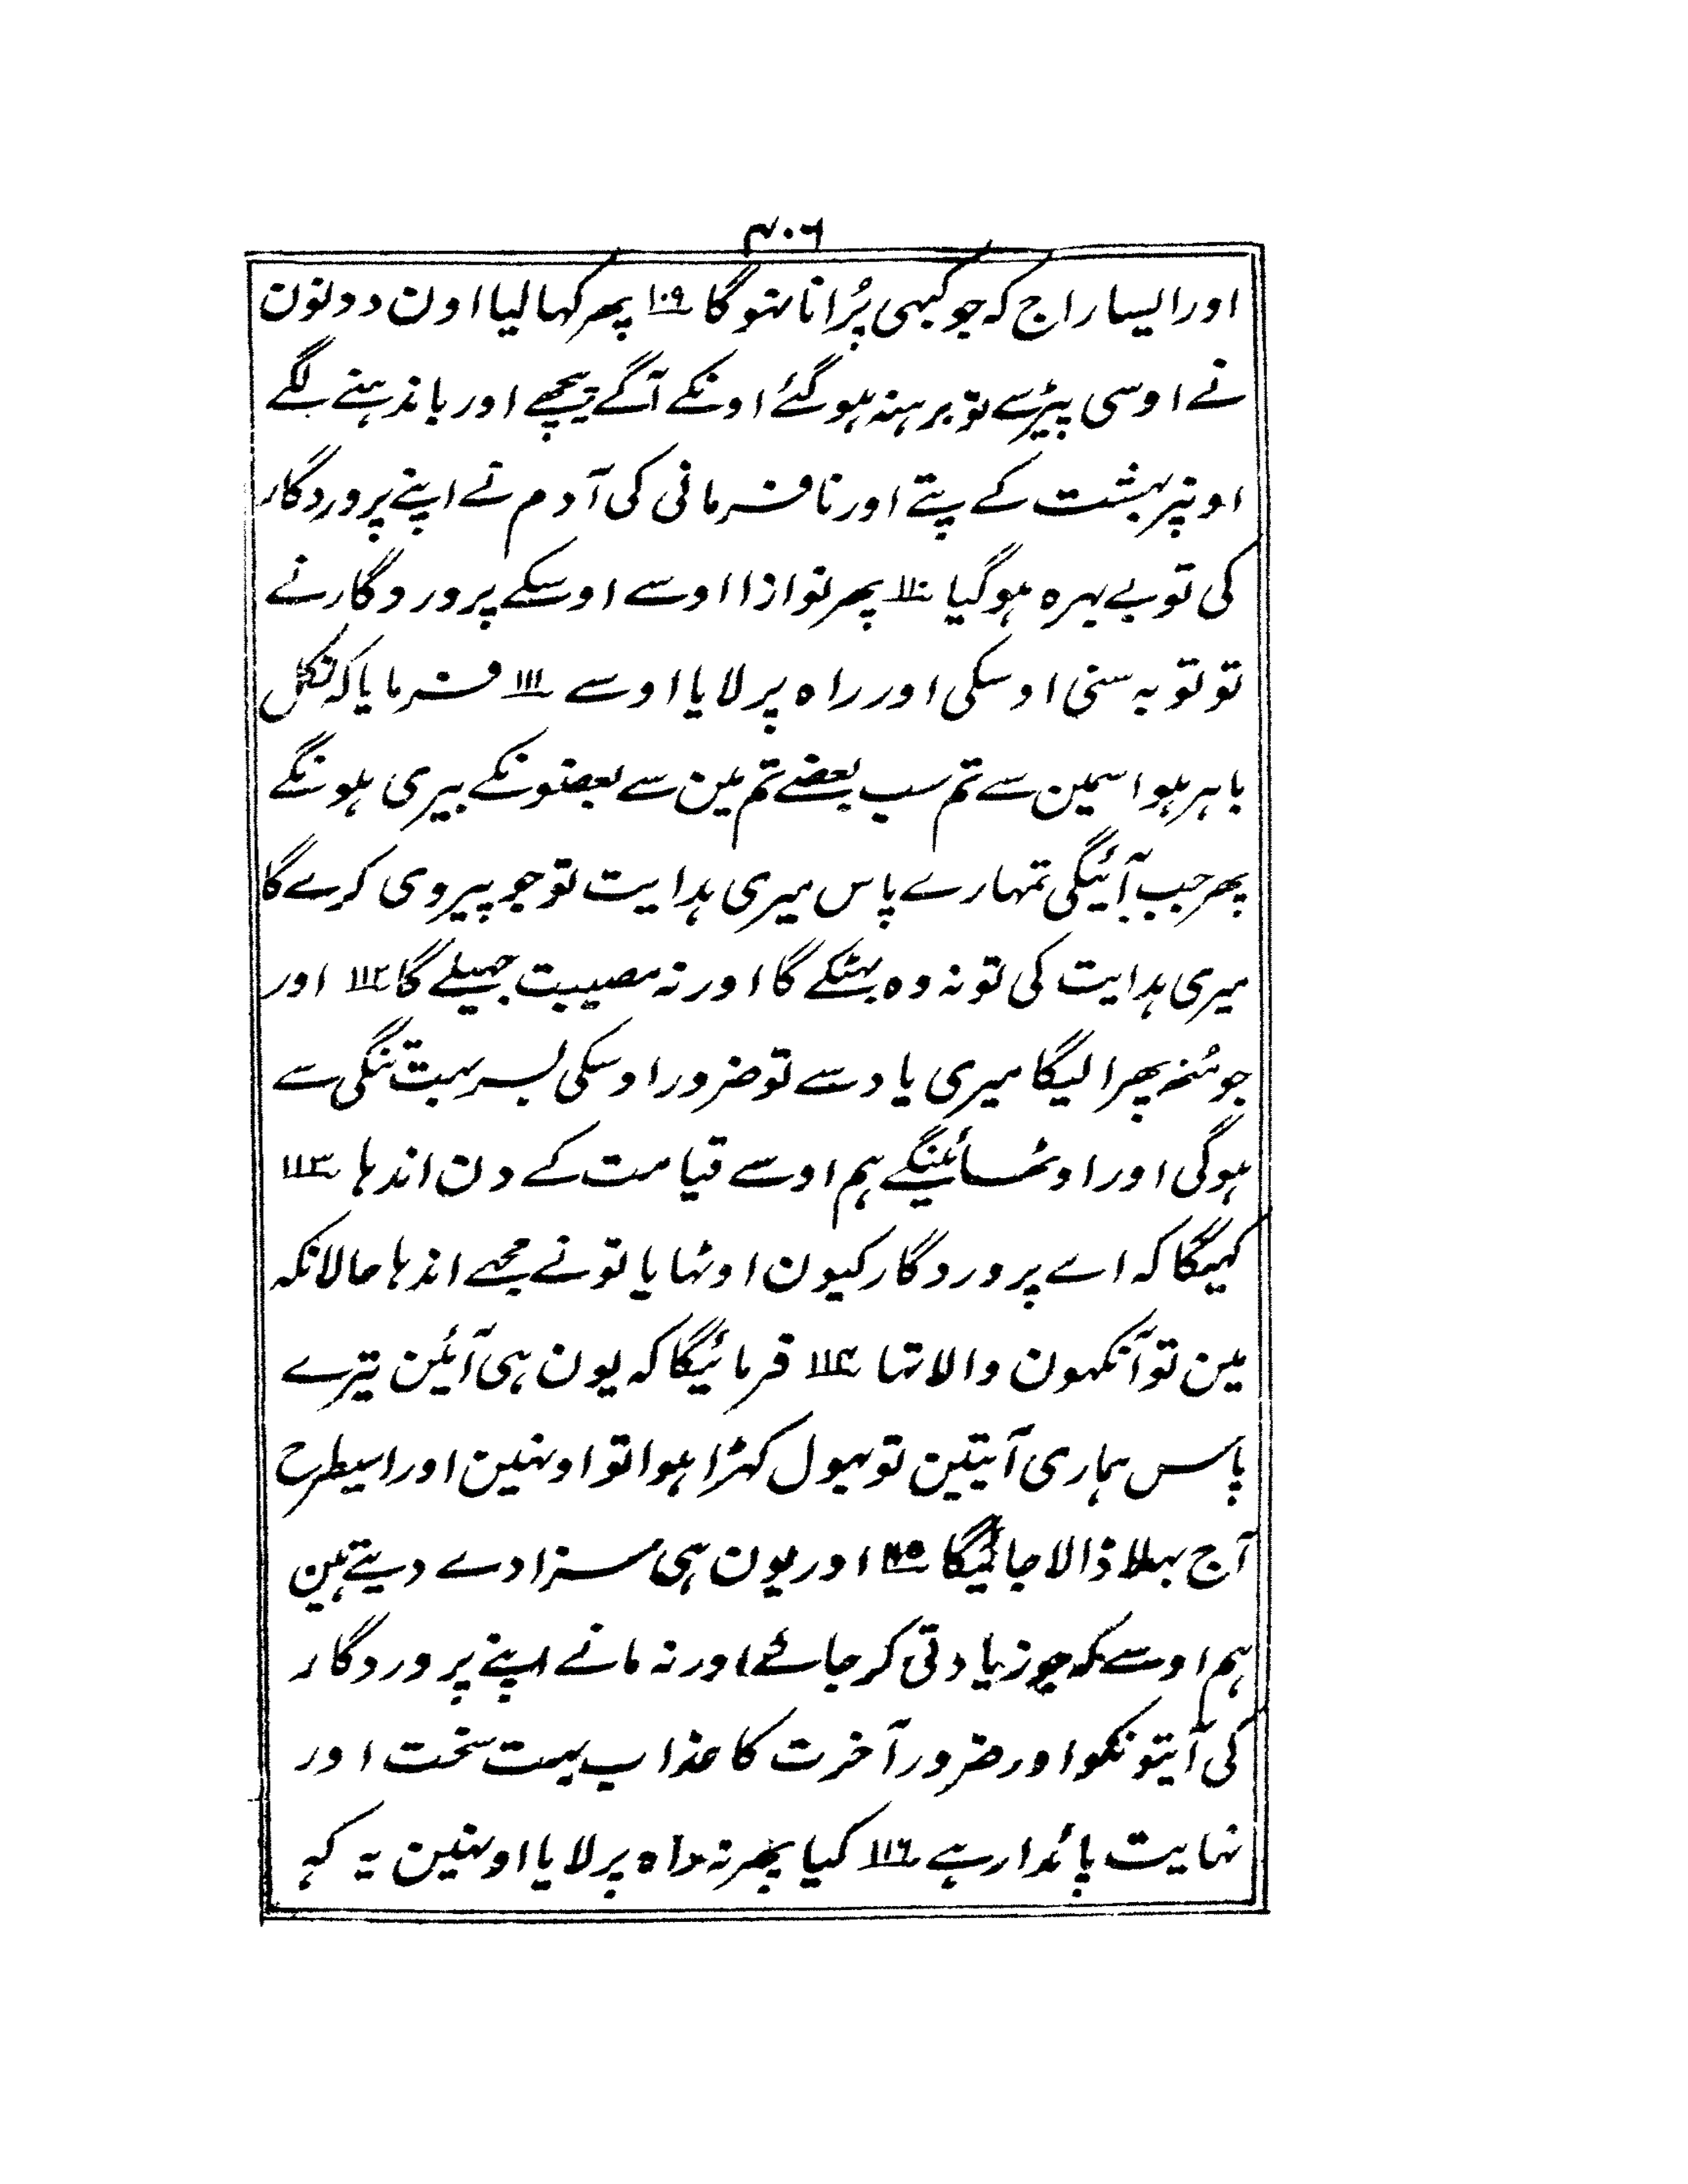 ۴۰۶
اور ایسا راج کہ جو کبھی پُرانا نہو گا ۱۰۹ پھر کہا لیا اون دونون
نے اوسی پیڑسے تو برہنہ ہو گئے اونکے آگے پیچھے اور باندہنے لگے
اونپر بہشت کے پتے اور نافرمانی کی آدم نے اپنے پروردگار
کی تو بے بہرہ ہو گیا ۱۱۰ پھر نوازا اوسے اوسکے پروردگار نے
تو توبہ سنی اوسکی اور راہ پر لایا اوسے ۱۱۱ فرمایا کہ نکل
باہر ہو اسمین سے تم سب بعضے تم مین سے بعضونکے بیری ہونگے
پھر جب آئیگی تمہارے پاس میری ہدایت تو جو پیروی کرے گا
میری ہدایت کی تو نہ وہ بہٹکے گا اور نہ مصیبت جہیلے گا ۱۱۲ اور
جو منھ پھرا لیگا میری یاد سے تو ضرور اوسکی بسر بہت تنگی سے
ہو گی اور اوٹھائینگے ہم اوسے قیامت کے دن اندہا ۱۱۳
کہیگا کہ اے پروردگار کیون اوٹہایا تو نے مجھے اندہا حالانکہ
مین تو آنکہون والا تہا ۱۱۴ فرمائیگا کہ یون ہی آئین تیرے
پاس ہماری آیتین تو بہول کہڑا ہوا تو اونہین اور اسیطرح
آج بہلا ڈالا جائیگا ۱۱۵ اور یون ہی سزا دے دیتے ہین
ہم اوسے کہ جو زیادتی کر جائے اور نہ مانے اپنے پروردگار
کی آیتونکو اور ضرور آخرت کا عذاب بہت سخت اور
نہایت پائدار ہے ۱۱۶ کیا پھر نہ راہ پر لایا اونہین یہ کہ